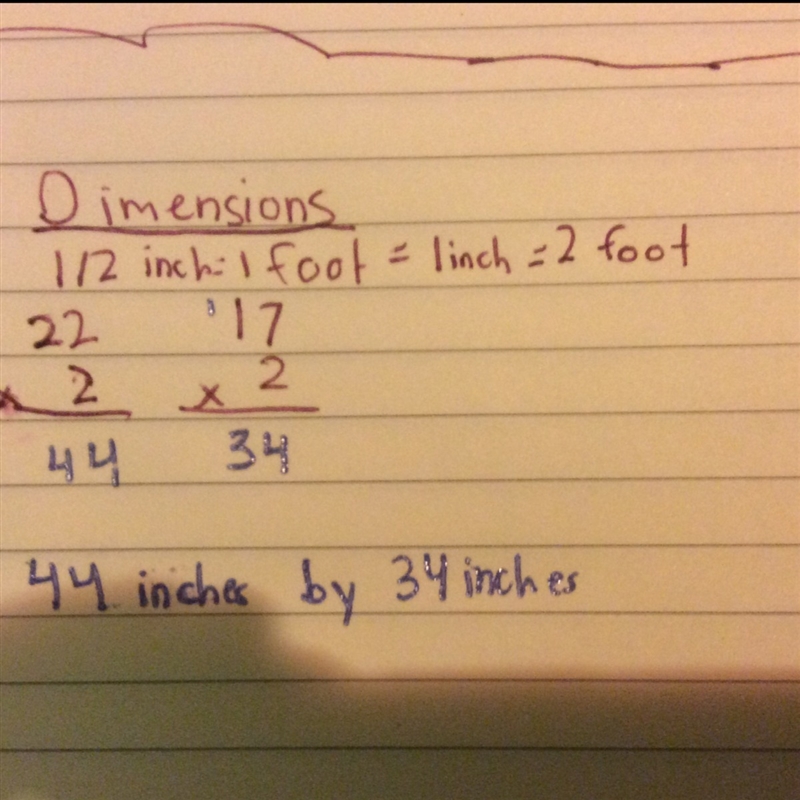 Dimensions
1/2 inch = 1 foot = 1inch = 2 foot
22 17
x 2 x 2
44 34
44 inches by 34 inches